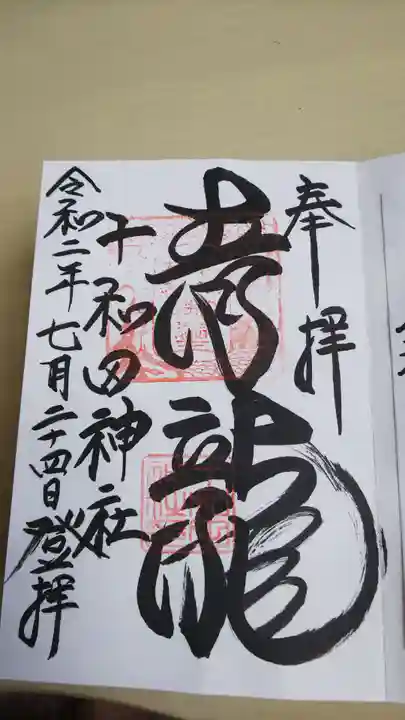 奉拝
青龍
十和田神社
令和二年七月二十四日登拝